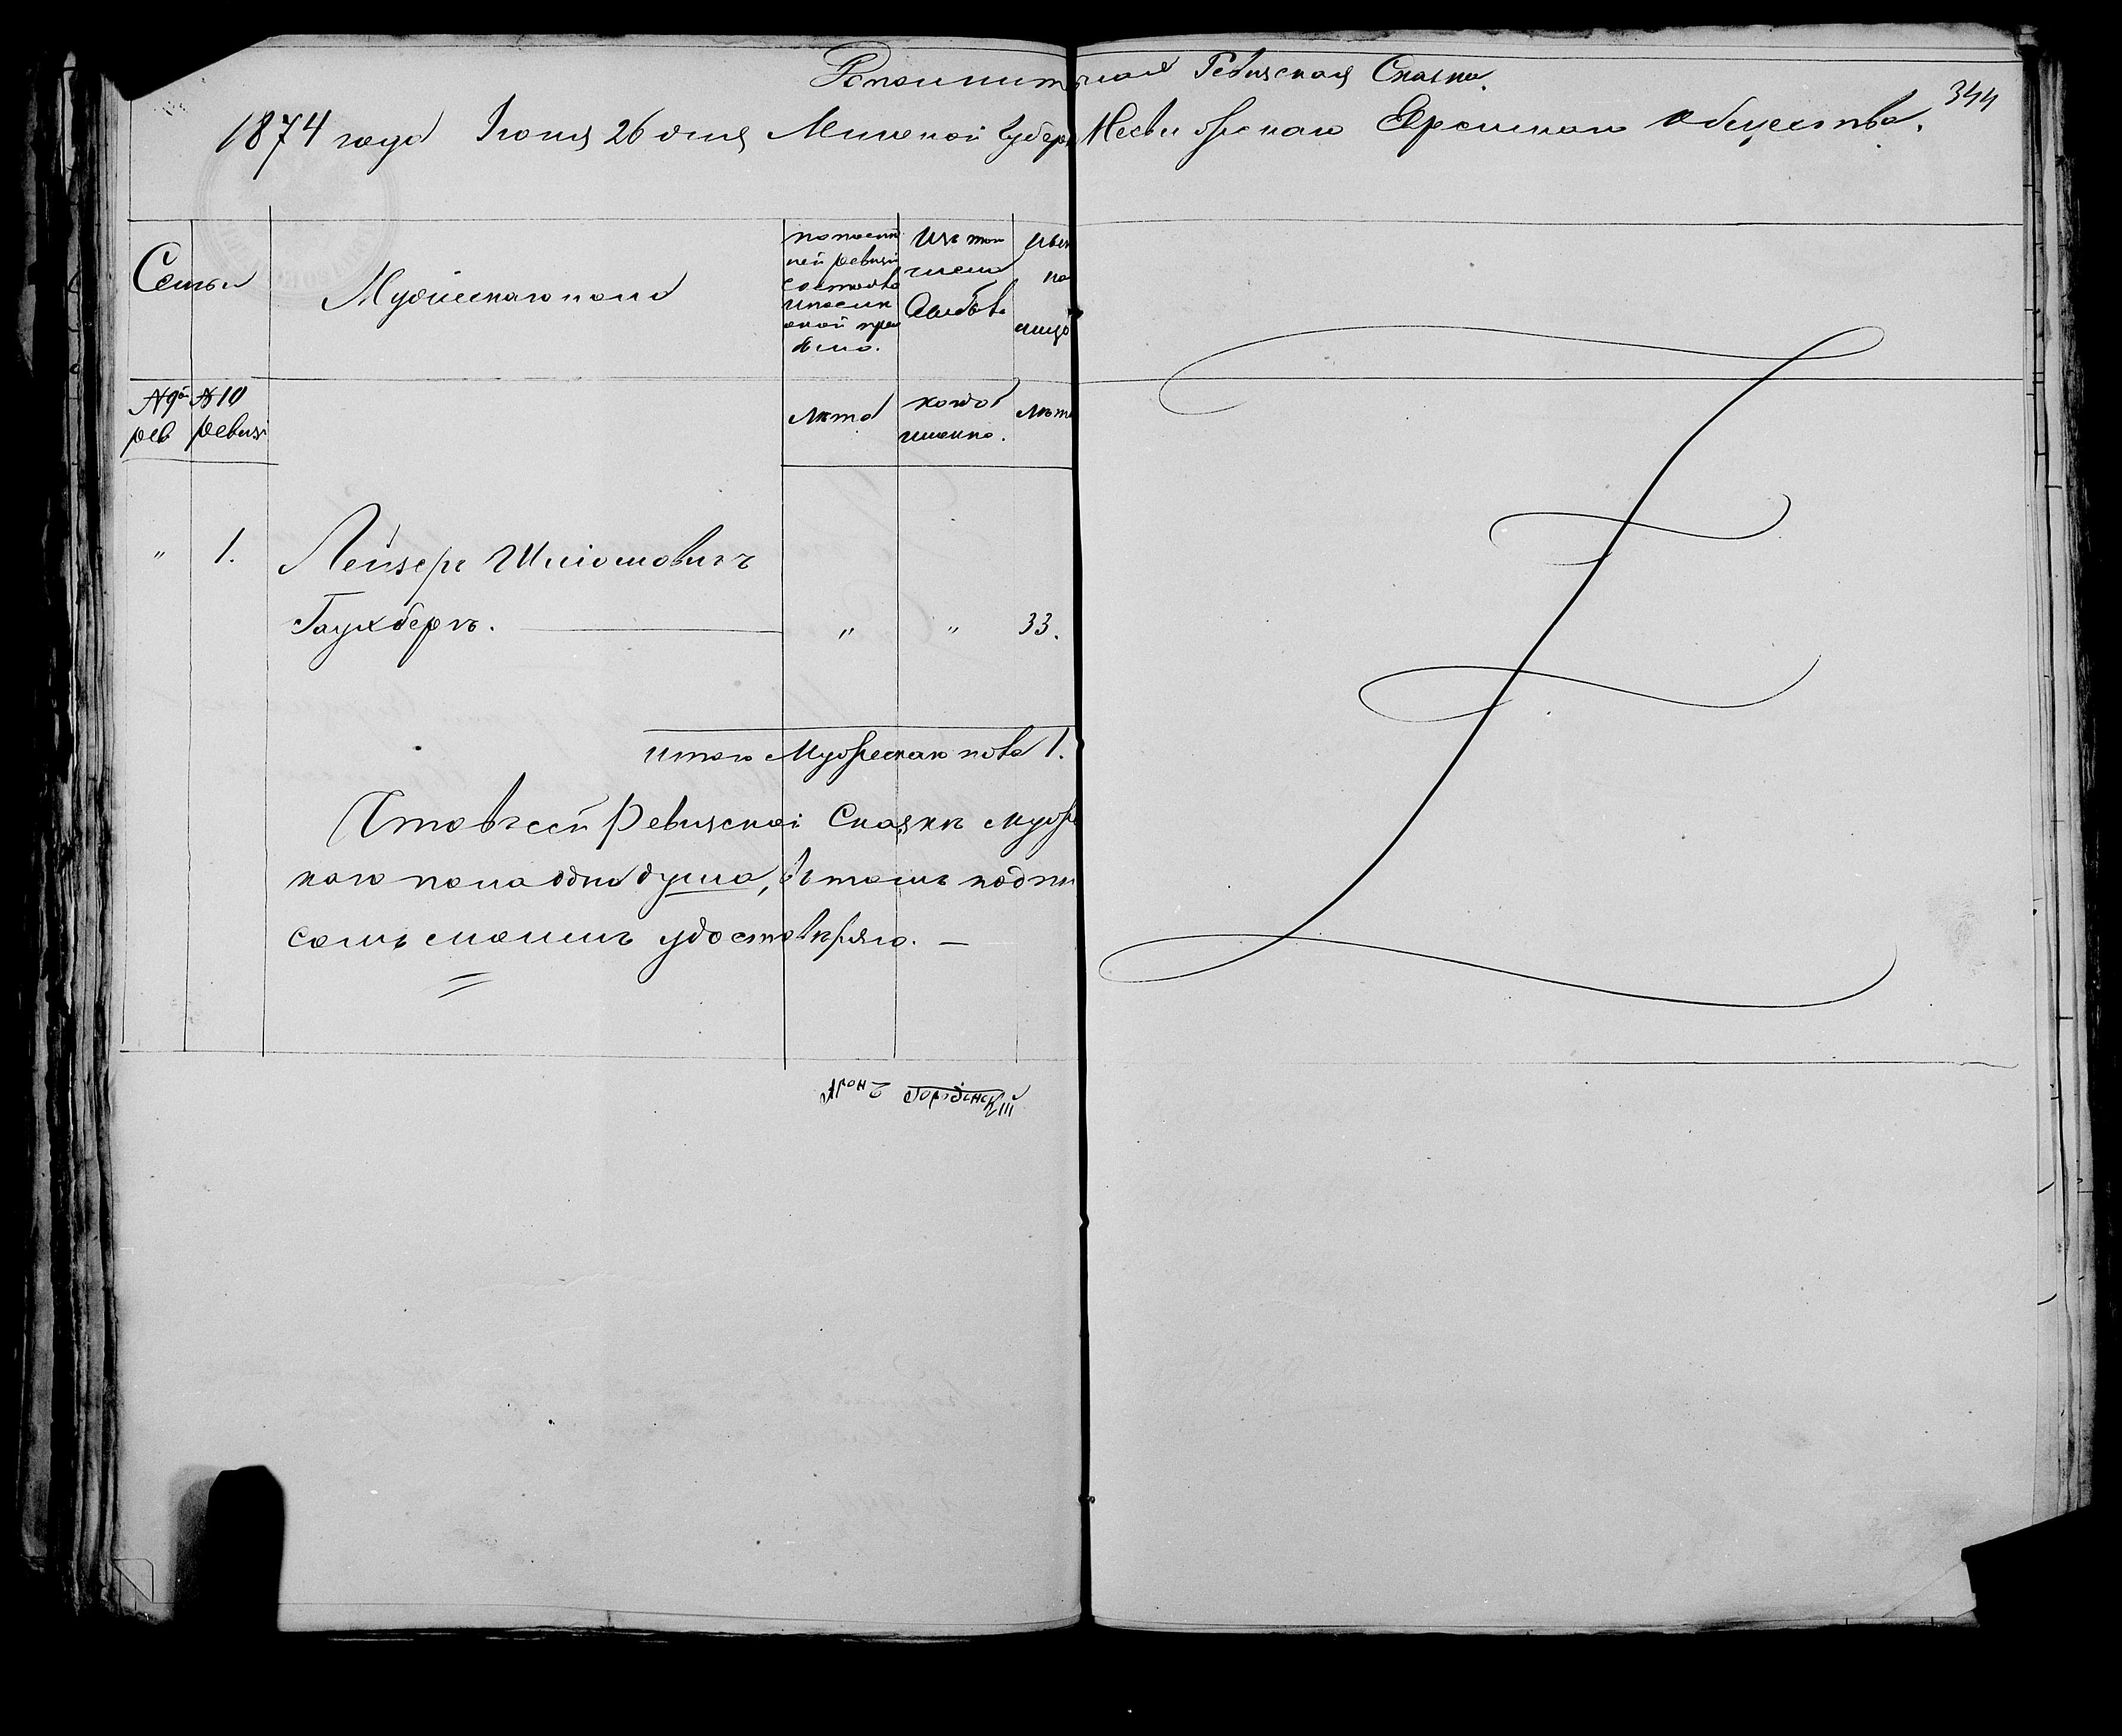 Дополнительная Ревизская Сказка.
344
1874 года Іюня 26 дня Минской Губерн Несвижскаго Еврейскаго общества.
Семьи
Мужескаго пола
по послѣд
ней ревизіи
состояло
и послѣ
оной при
было.
Изъ того
числа
выбыло
Нын
на
лицо
№ 9й
рев
№ 10
ревизі
Лѣта
когда
именно.
Лѣта
" 1. Лейзеръ Шліомовичъ
Гаухберъ. " " 33.
итого Мужескаго пола 1.
Что въ сей Ревизской Сказкѣ муже
каго пола одна душа, въ томъ подпи
сомъ моимъ удостовѣряю. —
Аронъ Городинскій